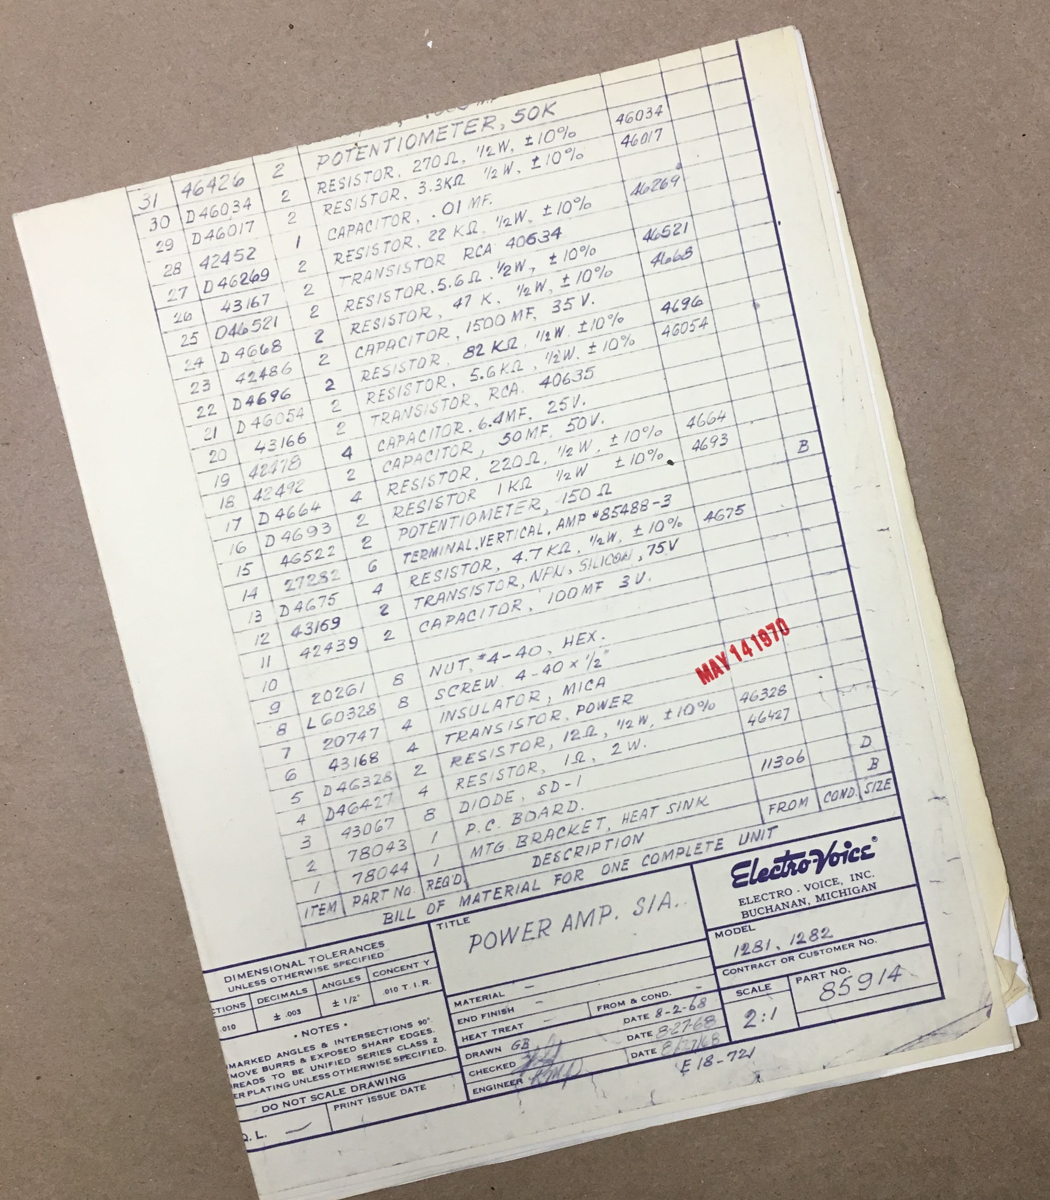 31 46426 2 POTENTIOMETER, 50K
30 D46034 2 RESISTOR, 270Ω, 1/2W, ±10% 46034
29 D46017 2 RESISTOR, 3.3KΩ 1/2W, ±10% 46017
28 42452 1 CAPACITOR, .01 MF.
27 D46269 2 RESISTOR, 22 KΩ, 1/2W, ±10% 46269
26 43167 2 TRANSISTOR RCA 40634
25 D46521 2 RESISTOR, 5.6Ω, 1/2W, ±10% 46521
24 D4668 2 RESISTOR, 47 K, 1/2W, ±10% 4668
23 42486 2 CAPACITOR, 1500 MF, 35 V.
22 D4696 2 RESISTOR, 82 KΩ, 1/2W, ±10% 4696
21 D46054 2 RESISTOR, 5.6KΩ, 1/2W, ±10% 46054
20 43166 2 TRANSISTOR, RCA. 40635
19 42478 4 CAPACITOR, 6.4MF, 25V.
18 42492 2 CAPACITOR, 50MF, 50V.
17 D4664 4 RESISTOR, 220Ω, 1/2W, ±10% 4664
16 D4693 2 RESISTOR 1KΩ 1/2W ±10% 4693
15 46522 2 POTENTIOMETER, 150 Ω
14 27282 6 TERMINAL, VERTICAL, AMP #85488-3 B
13 D4675 4 RESISTOR, 4.7 KΩ, 1/2W, ±10% 4675
12 43169 2 TRANSISTOR, NPN, SILICON, 75V
11 42439 2 CAPACITOR, 100MF 3V.
10
9 20261 8 NUT, #4-40, HEX.
8 L60328 8 SCREW 4-40 x 1/2"
7 20747 4 INSULATOR, MICA
6 43168 4 TRANSISTOR, POWER
5 D46328 2 RESISTOR, 12Ω, 1/2W, ±10% 46328
4 D46427 4 RESISTOR, 1Ω, 2W. 46427
3 43067 8 DIODE, SD-1
2 78043 1 P.C. BOARD. 11306 D
1 78044 1 MTG BRACKET, HEAT SINK B
ITEM PART No REQ'D. DESCRIPTION FROM COND. SIZE
BILL OF MATERIAL FOR ONE COMPLETE UNIT
MAY 14 1970
DIMENSIONAL TOLERANCES
UNLESS OTHERWISE SPECIFIED
CTIONS DECIMALS ANGLES CONCENT Y
.010 ± .003 ± 1/2° .010 T.I.R.
• NOTES •
MARKED ANGLES & INTERSECTIONS 90°
MOVE BURRS & EXPOSED SHARP EDGES.
READS TO BE UNIFIED SERIES CLASS 2
ER PLATING UNLESS OTHERWISE SPECIFIED.
DO NOT SCALE DRAWING
PRINT ISSUE DATE
Q. L. —
TITLE
POWER AMP. S/A.
MATERIAL –
END FINISH – FROM & COND. –
HEAT TREAT – DATE 8-2-68
DRAWN GB DATE 8-27-68
CHECKED DATE 8/27/68
ENGINEER
E18-721
Electro-Voice®
ELECTRO-VOICE, INC.
BUCHANAN, MICHIGAN
MODEL
1281, 1282
CONTRACT OR CUSTOMER No.
SCALE PART NO.
2:1 85914